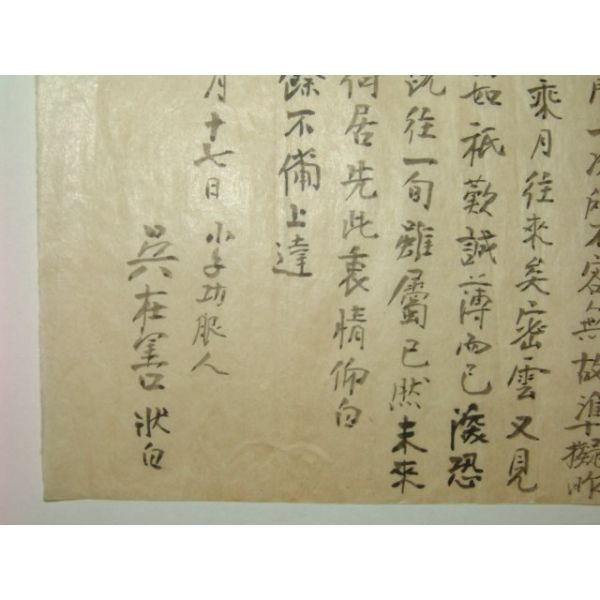 一次所不容無故準擬昨
乘月往來矣密雲又見
祗歎誠薄而已深恐
往一旬雖屬已然未來
居先此裏情仰白
餘不備上達
月十七日 小子功服人
吳在善 狀白